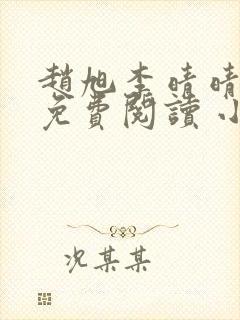 趙旭李晴晴
免費閱讀小
况某某